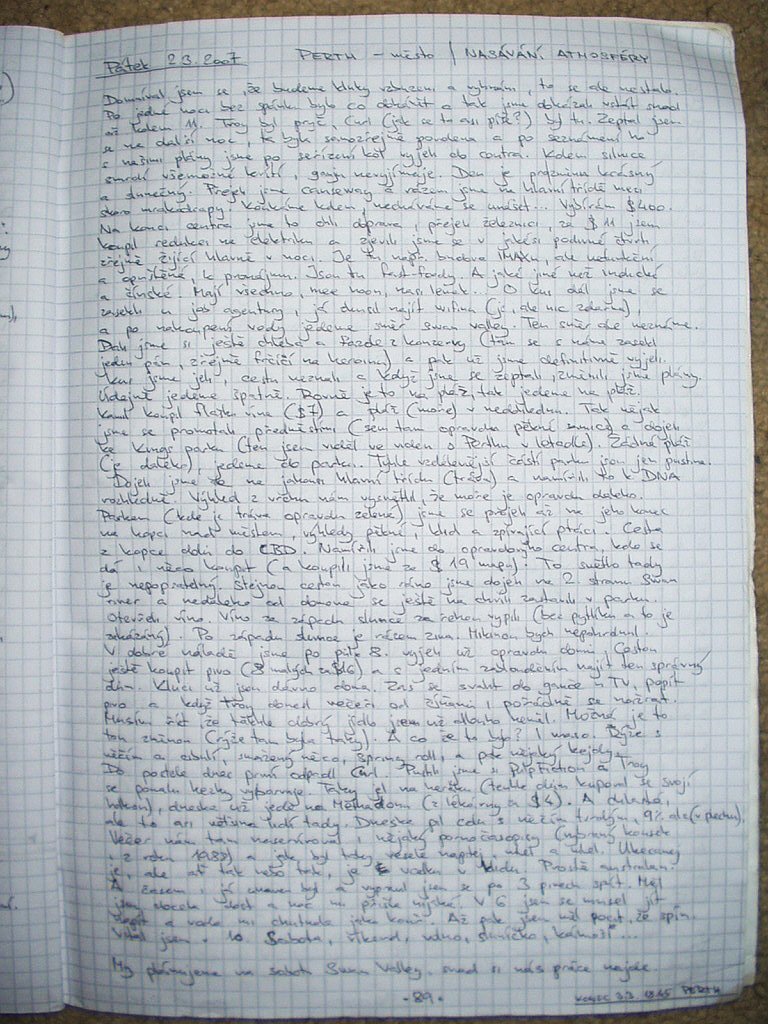 Pátek 2.3.2007 PERTH - město / NASÁVÁNÍ ATMOSFÉRY
Domníval jsem se, že budeme kluky vzbuzeni a vybráni, to se ale nestalo.
Po jedné noci bez spánku bylo co dohánět a tak jsme dokázali vstát snad
až kolem 11. Troy byl pryč, Curl (jak se to asi píše?) byl tu. Zeptal jsem
se na další noc, ta byla samozřejmě povolena a po seznámení ho
s našimi plány jsme po seřízení kol vyjeli do centra. Kolem silnice
smrdí všemožné kvítí, gumu nevyjímaje. Den je prozměnu krásný
a slunečný. Přejeli jsme causeway a rázem jsme na hlavní třídě mezi
skoro mrakodrapy. Koukáme kolem, necháváme se unášet... Vybírám $400.
Na konci centra jsme to ohli doprava, přejeli železnici, za $11 jsem
koupil redukci na elektriku a zjevili jsme se v jakési podivné čtvrti
zřejmě žijící hlavně v noci. Je tu např. budova IMAXu, ale nefunkční
a opuštěná, k pronájmu. Jsou tu fast-foody. A jaké jiné než indické
a čínské. Mají všechno, mee hoon, nasi lemak... O kus dál jsme se
zasekli u job agentury, já zkusil najít wifinu (jé, ale nic zdarma),
a po nakoupení vody jedeme směr Swan Valley. Ten směr ale neznáme.
Dali jsme si ještě chleba a fazole z konzervy (tam se s námi zasekl
jeden pán, zřejmě frčící na heroinu) a pak už jsme definitivně vyjeli.
Kus jsme jeli, cestu neznali a když jsme se zeptali, změnili jsme plány.
Údajně jedeme špatně. Rovně je to na pláž, tak jedeme na pláž.
Kamil koupil flašku vína ($7) a pláž (moře) v nedohlednu. Tak nějak
jsme se promotali předměstími (sem tam opravdu pěkné samice) a dojeli
ke Kings parku (ten jsem viděl ve videu o Perthu v letadle). Žádná pláž
(je daleko), jedeme do parku. Tyhle vzdálenější části parku jsou jen pustina.
Dojeli jsme se na jakousi hlavní třídu (tráva) a namířili to k DNA
rozhledně. Výhled z vrchu nám vysvětlil, že moře je opravdu daleko.
Parkem (kde je tráva opravdu zelená) jsme se přejeli až na jeho konec
na kopci nad městem, výhledy pěkné, klid a zpívající ptáci. Cesta
z kopce dolů do CBD. Namířili jsme do opravdového centra, kde se
dá i něco koupit (a koupili jsme za $19 mapu). To světlo tady
je nepopsatelný. Stejnou cestou jako ráno jsme dojeli na 2. stranu Swan
river a nedaleko od domova se ještě na chvíli zastavili v parku.
Otevřeli víno. Víno za západu slunce za řekou vypili (bez pytlíku a to je
zakázaný). Po západu slunce je rázem zima. Mikinou bych nepohrdnul.
V dobré náladě jsme po půl 8. vyjeli už opravdu domů. Cestou
ještě koupit pivo (8 malých za $16) a s jedním zabloudením najít ten správný
dům. Kluci už jsou dávno doma. Zas se svalit do gauče u TV, popít
pivo a když Troy donesl večeři od číňanů i pořádně se nažrat.
Musím říct že takhle dobrý jídlo jsem už dlouho neměl. Možná je to
tou změnou (rýže tam byla taky). A co že to bylo? I maso. Rýže s
něčím a cibulí, smažený něco, spring roll, a pak nějaký
Do postele dnes první odpadl Curl. Pustili jsme si PulpFiction a Troy
se pomalu hezky vybarvuje. Taky jel na heráku (tenhle dům kupoval se svojí
holkou), dneska už jede na Methadonu (z lékárny za $4). A
ale to asi většina lidí tady. Dneska pil colu s něčím tvrdým, 9% alc (v plechu),
Večer nám tam naservíroval i nějaký pornočasopisy (vybraný kousek
i z roku 1982) a jak byl taky vesele napitej, ukel a ukel. Ukecanej
je, ale ať tak nebo tak, je v klidu. Prostě australan.
A časem i já unaven byl a vypnul jsem se po 3 pivech spát. Měl
jsem docela dost a noc mi přišla nějaká. V 6 jsem se musel jít
napít a voda mi chutnala jako koňovi. Až pak jsem měl pocit, že spím.
Vstal jsem v 10. Sobota, víkend, volno, sluníčko, kámoši...
My plánujeme na sobotu Swan Valley. snad si nás práce najde.
- 89 -
KONEC 3.3. 18:45 PERTH